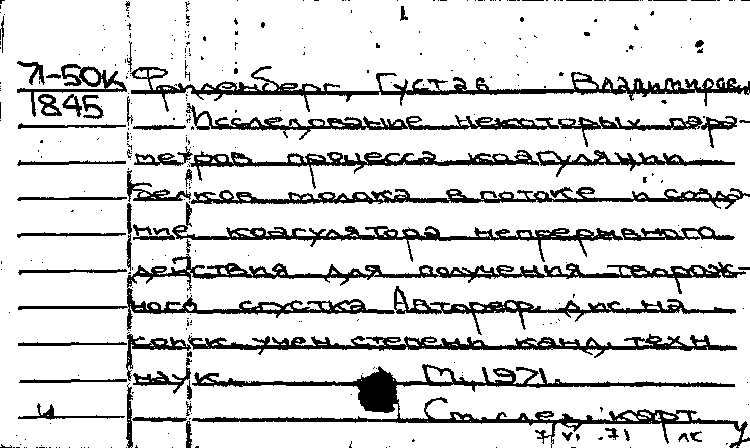 71-50к Фриденберг, Густав Владимиров.
1845 Исследование некоторых пара-
метров процесса коагуляции
белков молока в потоке и созда-
ние коагулятора непрерывного
действия для получения творож-
ного сгустка Автореф. дис. на
соиск. учен. степени канд. техн
наук. М., 1971.
и См. след. карт.
7/VI .71 лс